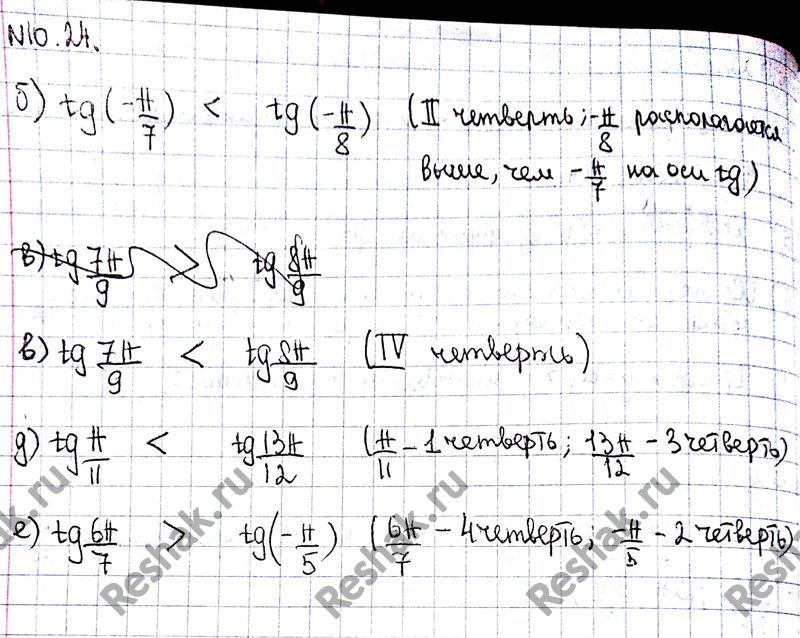 N10.24.
б) tg(-π/7) < tg(-π/8) (II четверть; -π/8 располагается
выше, чем -π/7 на оси tg)
в) tg 7π/9 > tg 8π/9
в) tg 7π/9 < tg 8π/9 (IV четверть)
д) tg π/11 < tg 13π/12 (π/11 - 1 четверть; 13π/12 - 3 четверть)
е) tg 6π/7 > tg(-π/5) (6π/7 - 4 четверть; -π/5 - 2 четверть)
Reshak.ru
Reshak.ru
Reshak.ru
Reshak.ru
Reshak.ru